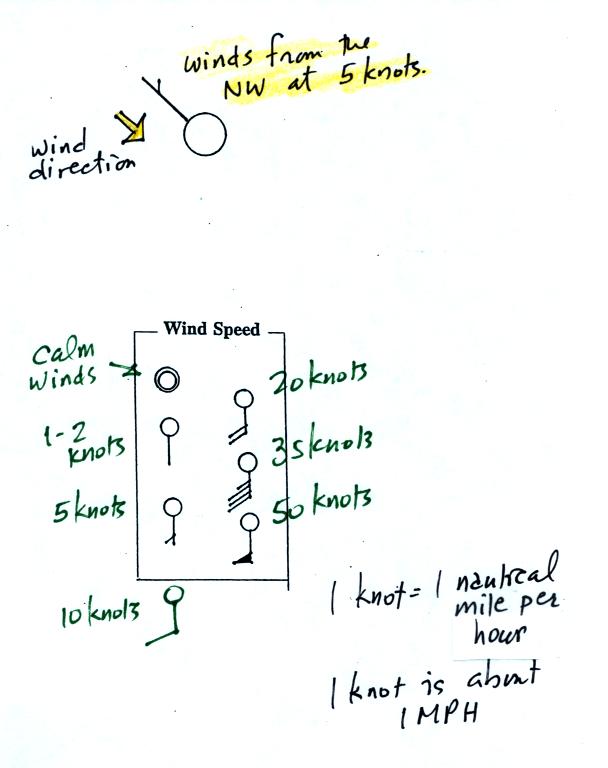 winds from the
NW at 5 knots.
wind
direction
Wind Speed
calm
winds
20 knots
1-2
knots
35 knots
5 knots
50 knots
10 knots
1 knot = 1 nautical
mile per
hour
1 knot is about
1 MPH